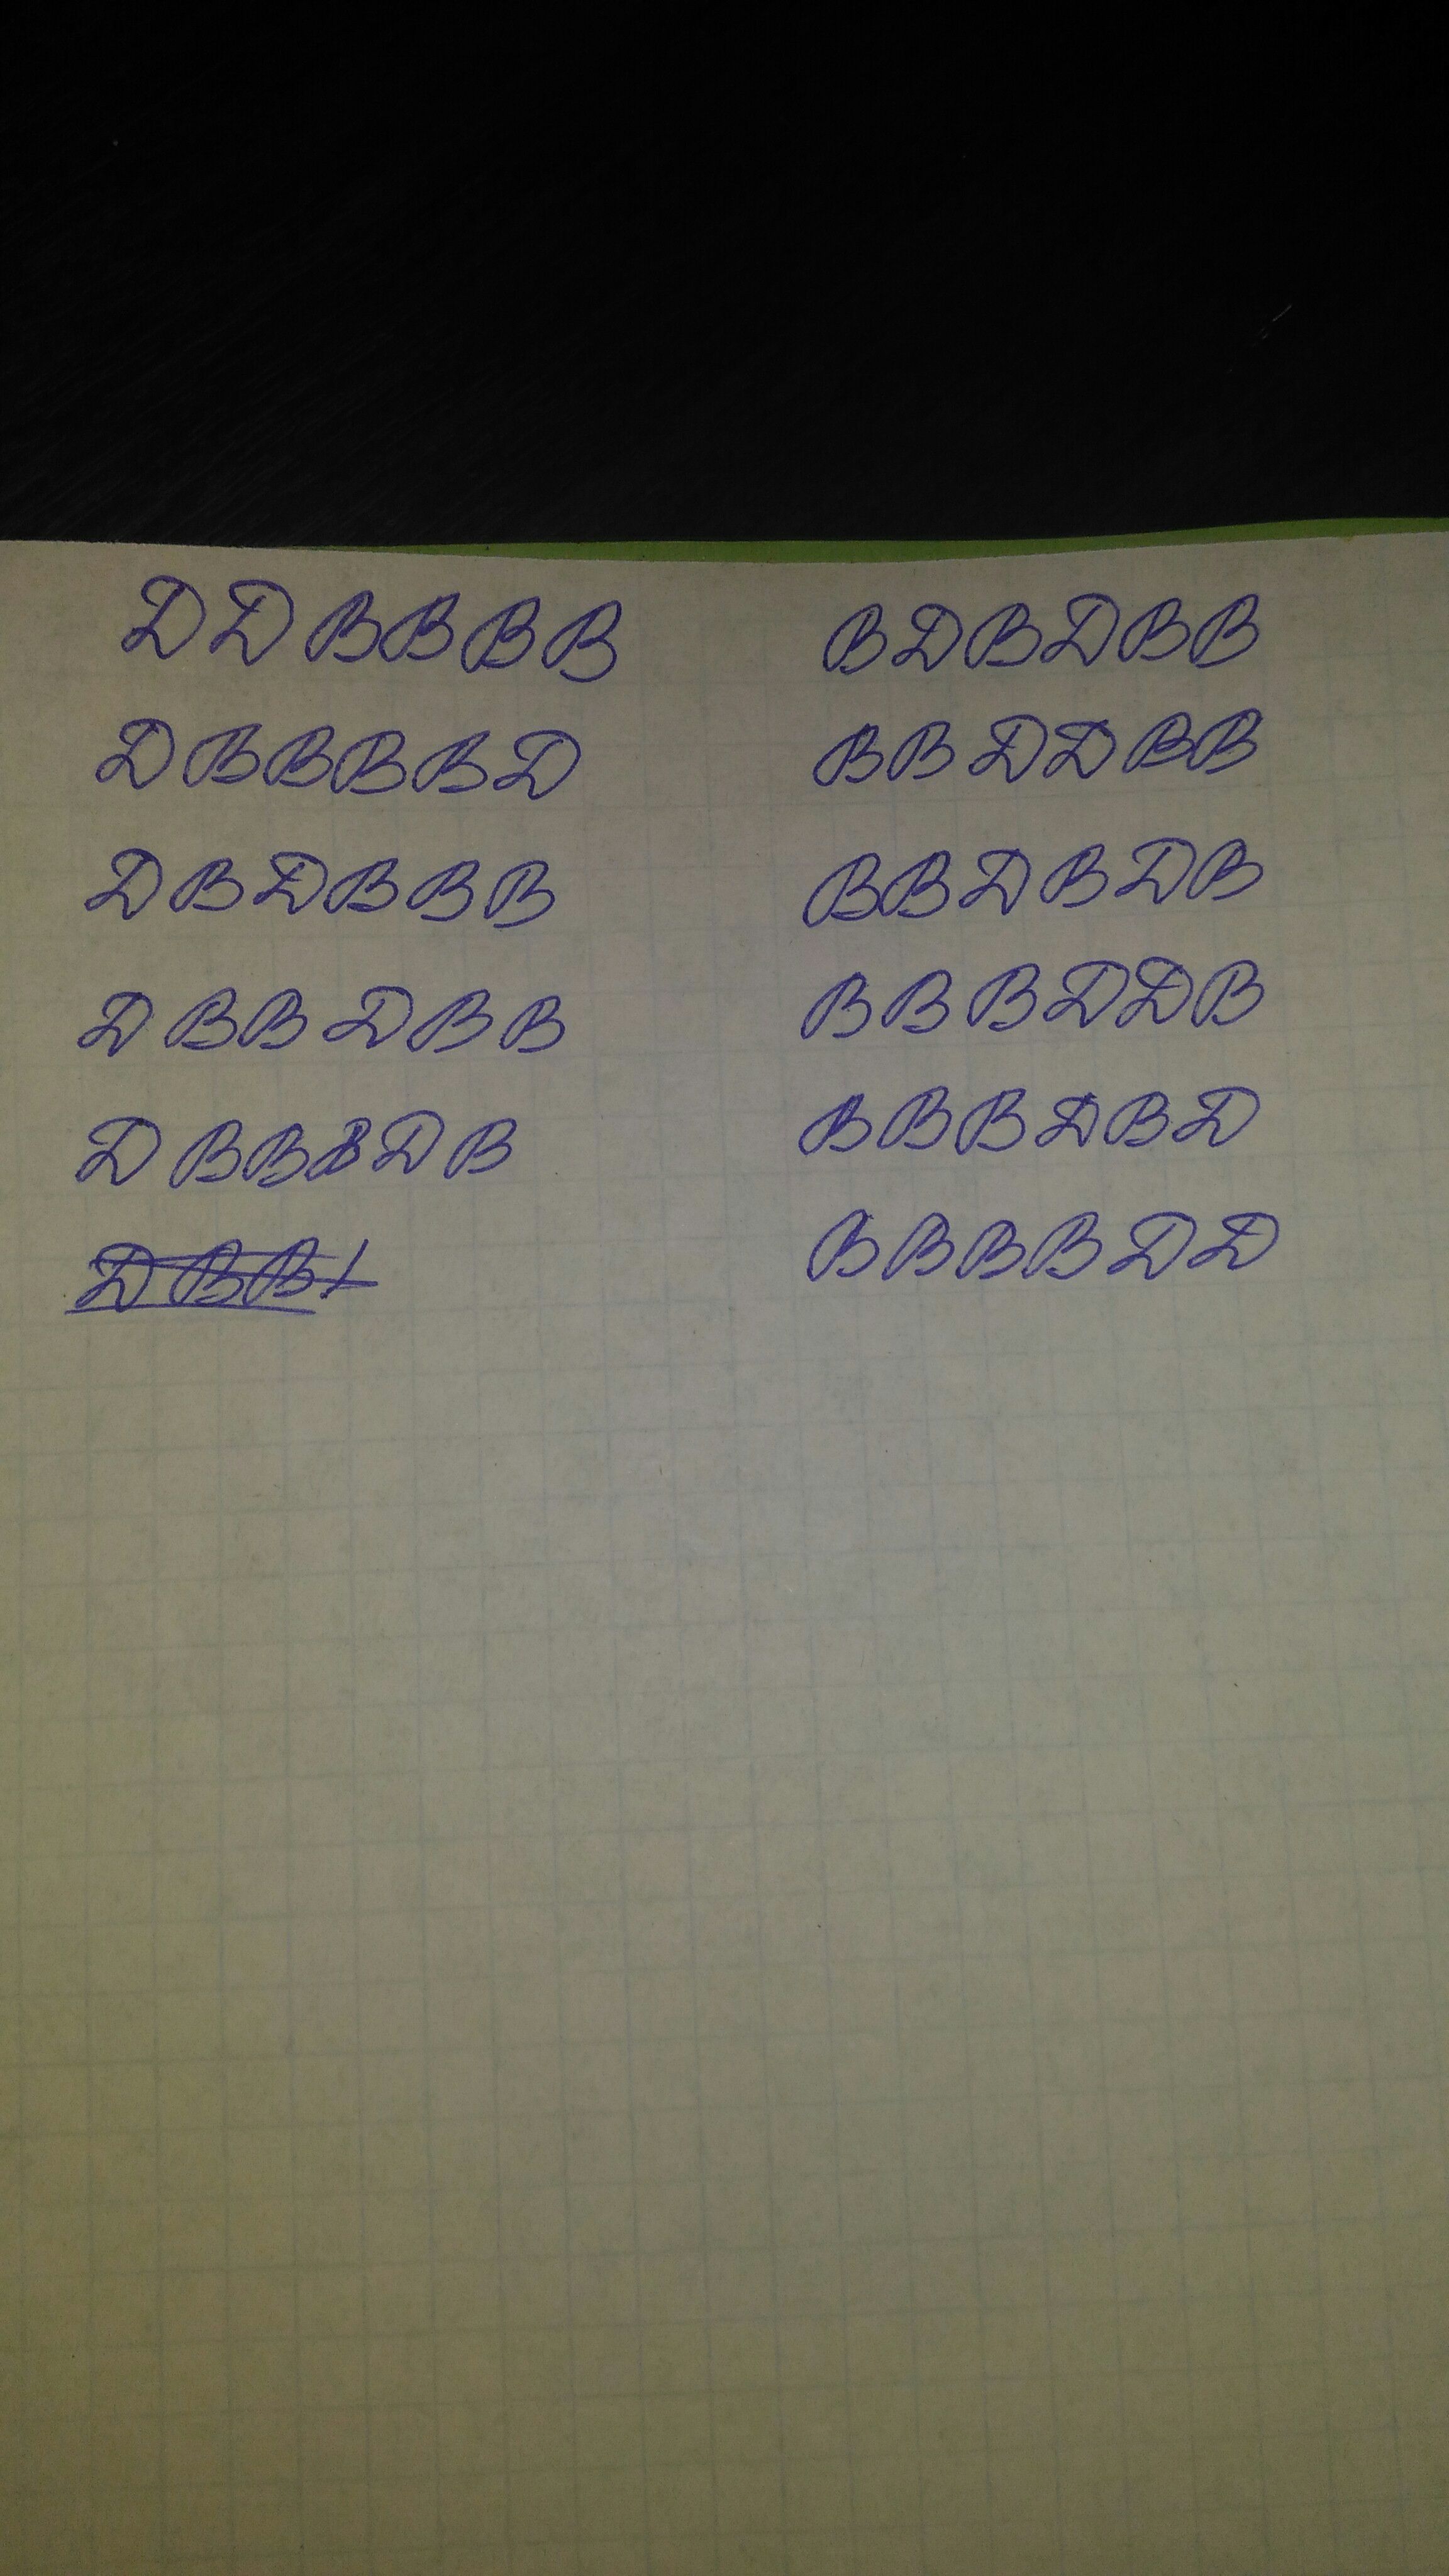 ДДВВВВ
ДВВВВД
ДВДВВВ
ДВВДВВ
ДВВВДВ
ДВВ
ВДВДВВ
ВВДДВВ
ВВДВДВ
ВВВДДВ
ВВВДВД
ВВВВДД